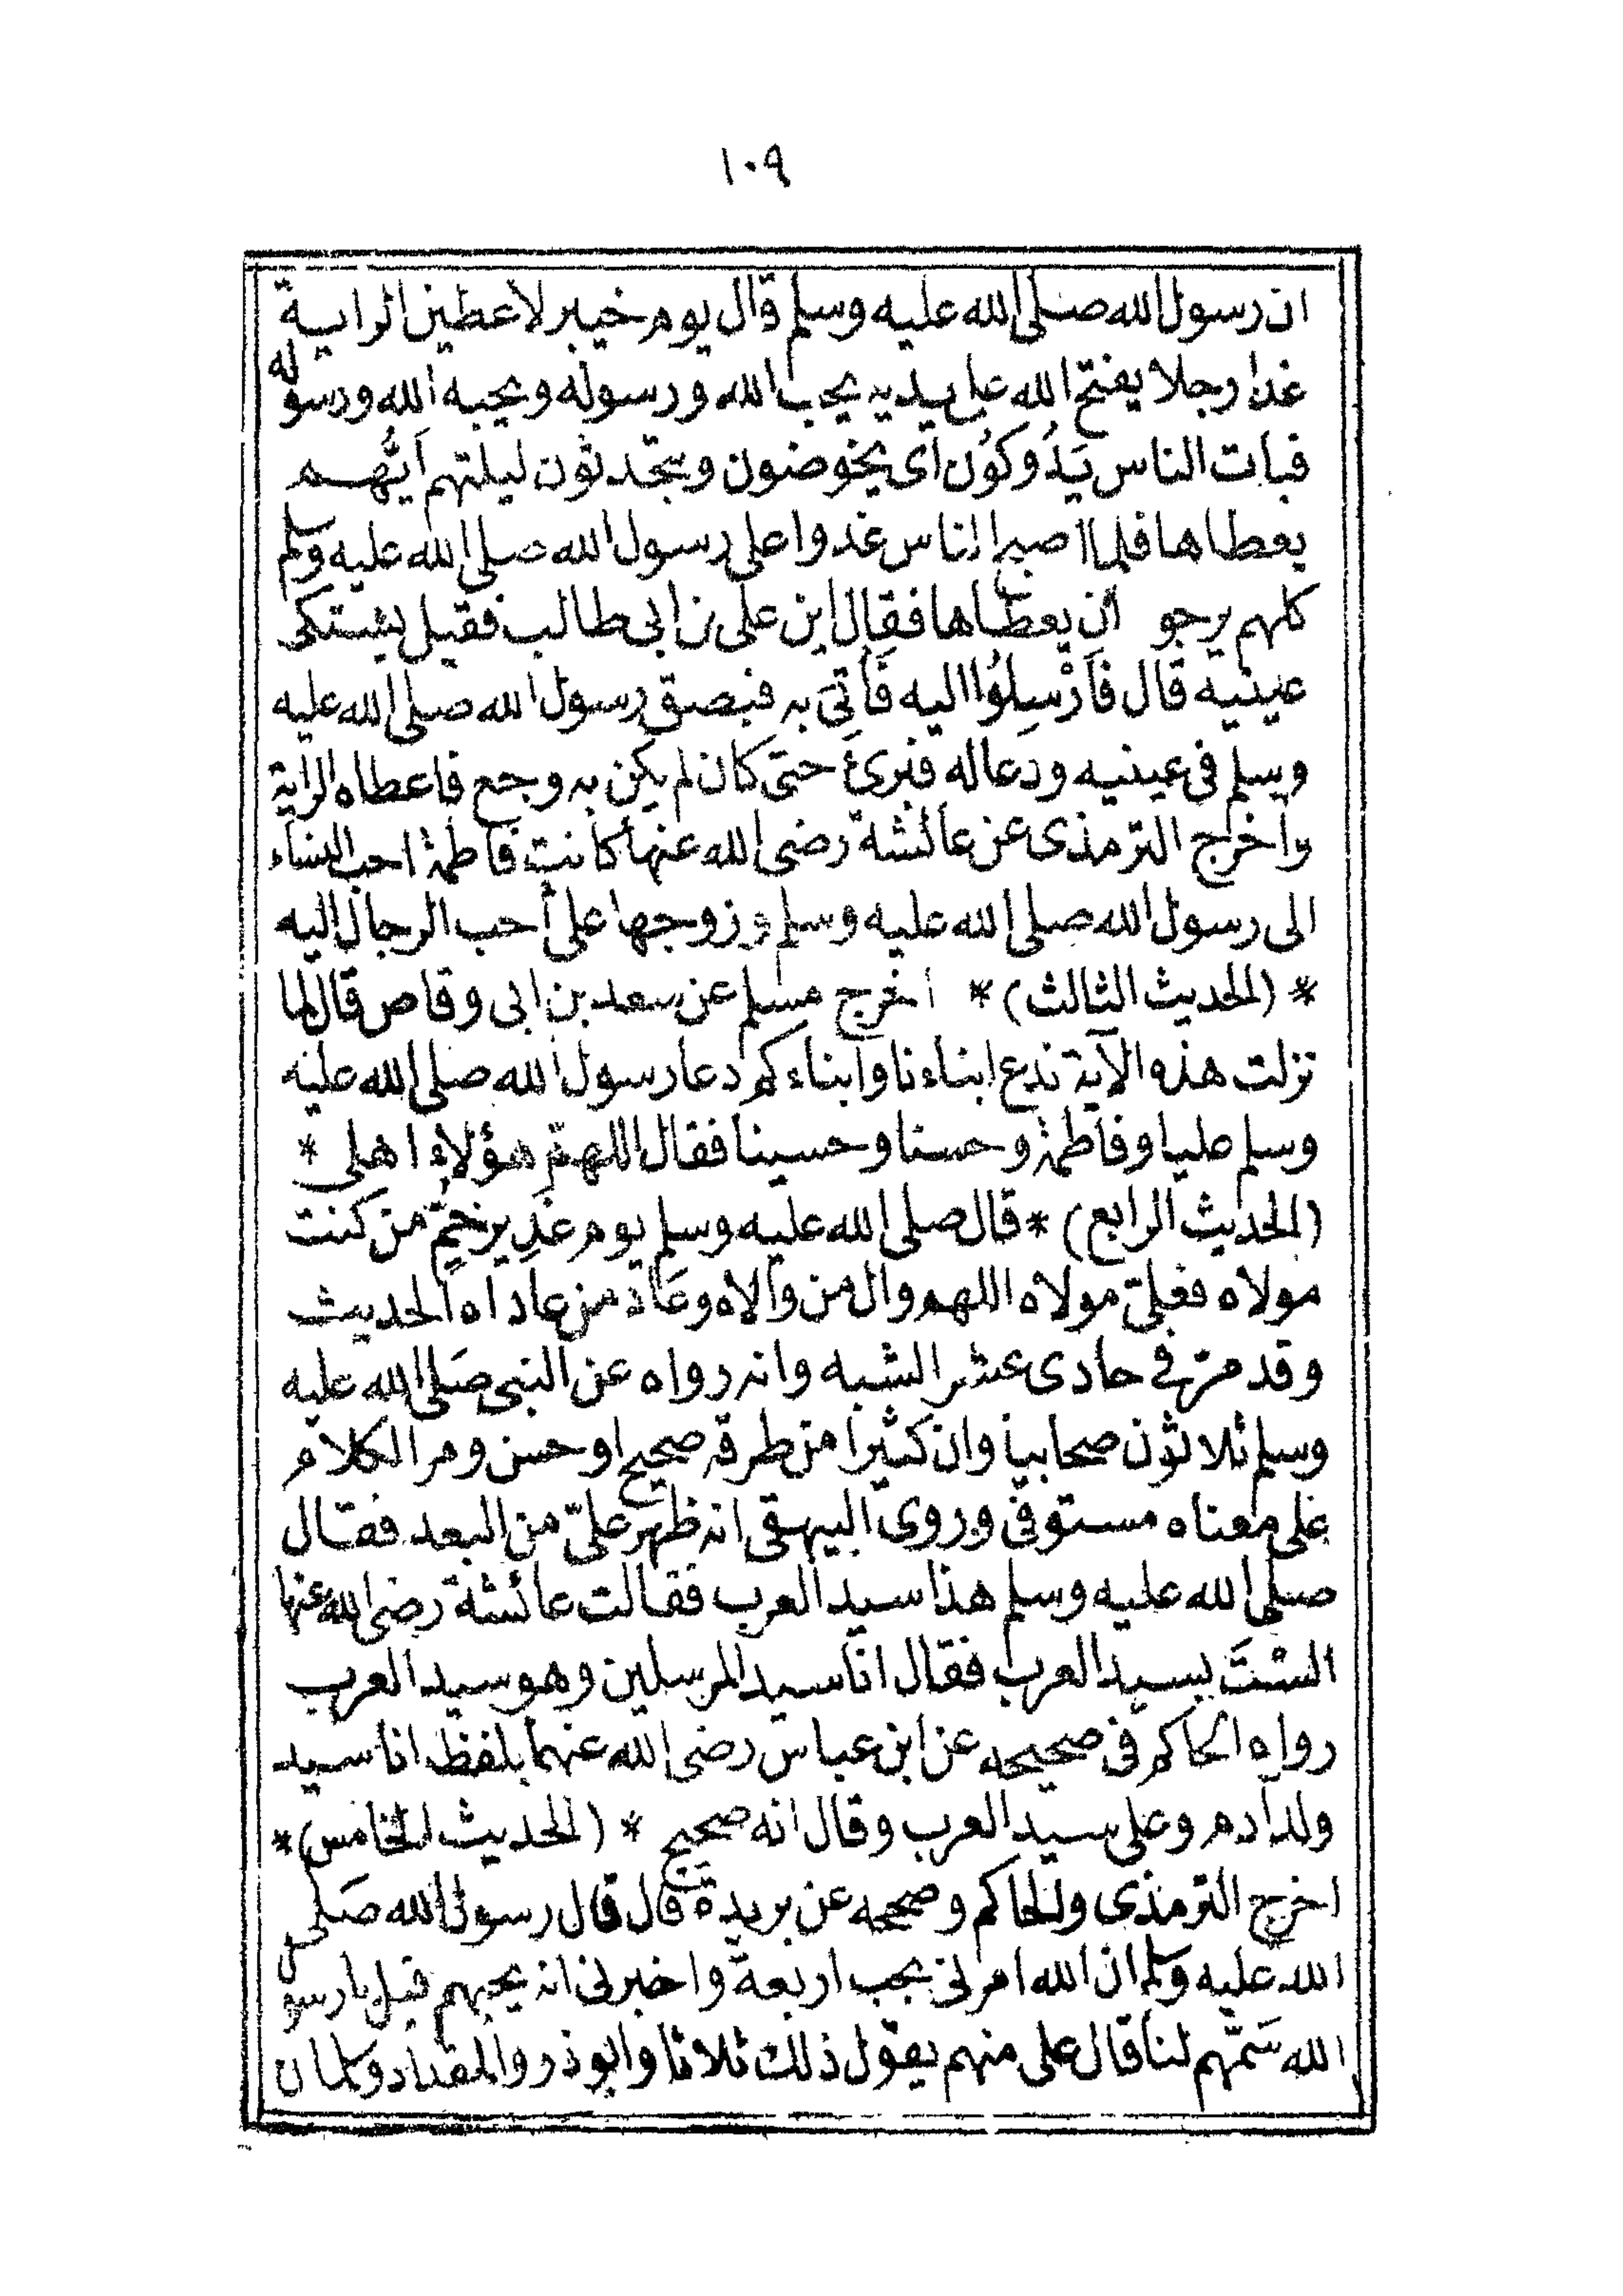 ١٠٩
ان رسول الله صلى الله عليه وسلم قال يوم خيبر لاعطين الراية
غدا رجلا يفتح الله على يديه يحب الله ورسوله ويحبه الله ورسوله
فبات الناس يَدُوكُون اى يخوضون ويتحدثون ليلتهم اَيُّهم
يعطاها فلما اصبح الناس غدوا على رسول الله صلى الله عليه وسلم
كلهم يرجو ان يعطاها فقال اين على بن ابى طالب فقيل يشتكى
عينيه قال فَاَرْسِلُوا اليه فَأُتِىَ به فبصق رسول الله صلى الله عليه
وسلم فى عينيه ودعا له فبرئ حتى كان لم يكن به وجع فاعطاه الراية
واخرج الترمذى عن عائشة رضى الله عنها كانت فاطمة احب النساء
الى رسول الله صلى الله عليه وسلم وزوجها على أحب الرجال اليه
* (الحديث الثالث) * اخرج مسلم عن سعد بن ابى وقاص قال لما
نزلت هذه الآية ندع ابناءنا وابناءكم دعا رسول الله صلى الله عليه
وسلم عليا وفاطمة وحسنا وحسينا فقال اللهمّ هؤلاء اهلى *
(الحديث الرابع) * قال صلى الله عليه وسلم يوم غَدِير خمّ من كنت
مولاه فعلىّ مولاه اللهم وال من والاه وعَاد من عاداه الحديث
وقد مرّ فى حادى عشر الشبه وانه رواه عن النبى صَلى الله عليه
وسلم ثلاثون صحابيا وان كثيرا من طرقه صحيح او حسن ومر الكلام
على معناه مستوفى وروى البيهقى انه ظهر علىّ من البعد فقال
صلى الله عليه وسلم هذا سيد العرب فقالت عائشة رضى الله عنها
الستَ بسيد العرب فقال انا سيد المرسلين وهو سيد العرب
رواه الحاكم فى صحيحه عن ابن عباس رضى الله عنهما بلفظ انا سيد
ولد آدم وعلى سيد العرب وقال انه صحيح * (الحديث الخامس) *
اخرج الترمذى والحاكم وصححه عن بريدة قال قال رسول الله صَلى
الله عليه وسلم ان الله امرنى بحب اربعة واخبرنى انه يحبهم قيل يا رسول
الله سَمّهم لنا قال على منهم يقول ذلك ثلاثا وابو ذر والمقداد وسلمان